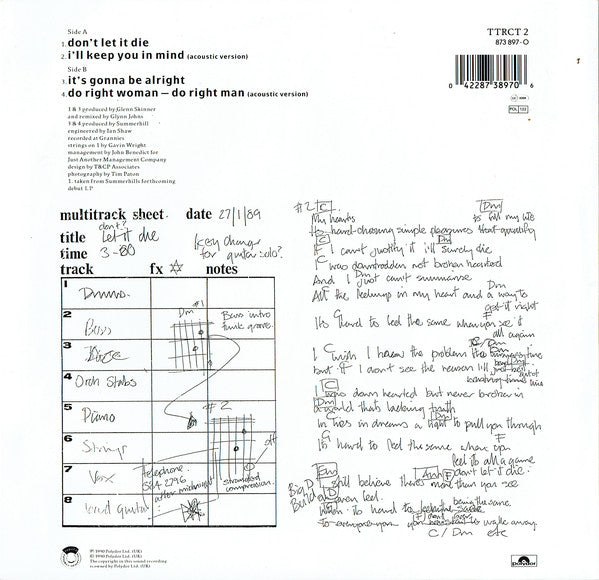 Side A
1. don't let it die
2. i'll keep you in mind (acoustic version)
Side B
3. it's gonna be alright
4. do right woman – do right man (acoustic version)
1 & 3 produced by Glenn Skinner
and remixed by Glyn Johns
3 & 4 produced by Summerhill
engineered by Ian Shaw
recorded at Grannies
strings on 1 by Gavin Wright
management by John Benedict for
Just Another Management Company
design by T&CP Associates
photography by Tim Paton
1. taken from Summerhills forthcoming
debut LP
TTRCT 2
873 897-O
0 42287 38970 6
POL 122
multitrack sheet. date 27/1/89
don't?
title Let it die
time 3-80
Key change
for guitar solo?
track fx notes
1 Drums.
2 Bass
Dm #1
Bass intro
funk groove.
3
4 Orch Stabs
5 Piano
#2
6 Strings
7 Vox
off
Telephone
584 2296
after midnight
Strands
compression.
8 lead guitar
#2 C Dm
My hearts to fill my life
hard-chasing simple pleasures that quantify
C Dm
If I can't justify it i'll surely die
C was downtrodden not broken hearted
And I just can't summarise
All the feelings in my heart and a way to
Dm
get it right
F
Its hard to feel the same when you see it
all again
C/Dm
I wish I knew the problem
but if I don't see the reason i'll
C
was down hearted but never broken in
Dm
a world that's lacking truth
C Dm
In lies in dreams a right to pull you through
F
Its hard to feel the same when you
feel its all a game
Dm Am F don't let it die.
I still believe there's more than you see
Big D
Build even feel.
being the same
When its hard to
F don't
to everyone you to walk away
C/Dm etc
℗ 1990 Polydor Ltd. (UK)
© 1990 Polydor Ltd. (UK)
The copyright in this sound recording
is owned by Polydor Ltd. (UK)
polydor